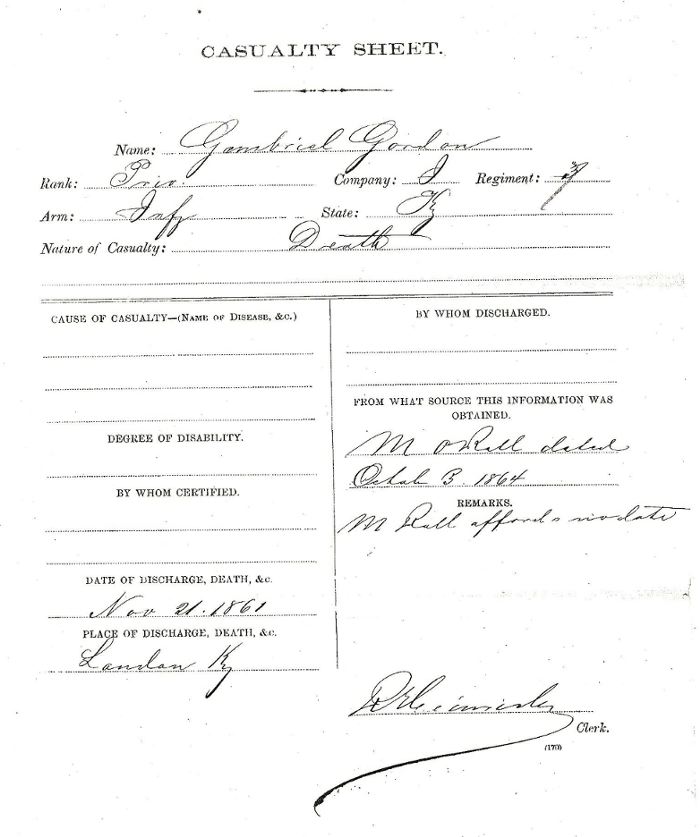 CASUALTY SHEET.
Name: Gambrial Gordon
Rank: Priv. Company: I Regiment: 7
Arm: Inf State: Ky
Nature of Casualty: Death
CAUSE OF CASUALTY—(NAME OF DISEASE, &C.)
DEGREE OF DISABILITY.
BY WHOM CERTIFIED.
DATE OF DISCHARGE, DEATH, &C.
Nov 21. 1861
PLACE OF DISCHARGE, DEATH, &C.
London Ky
BY WHOM DISCHARGED.
FROM WHAT SOURCE THIS INFORMATION WAS
OBTAINED.
M O Roll dated
Octob 3. 1864
REMARKS.
M Roll affords no date
Clerk.
(170)